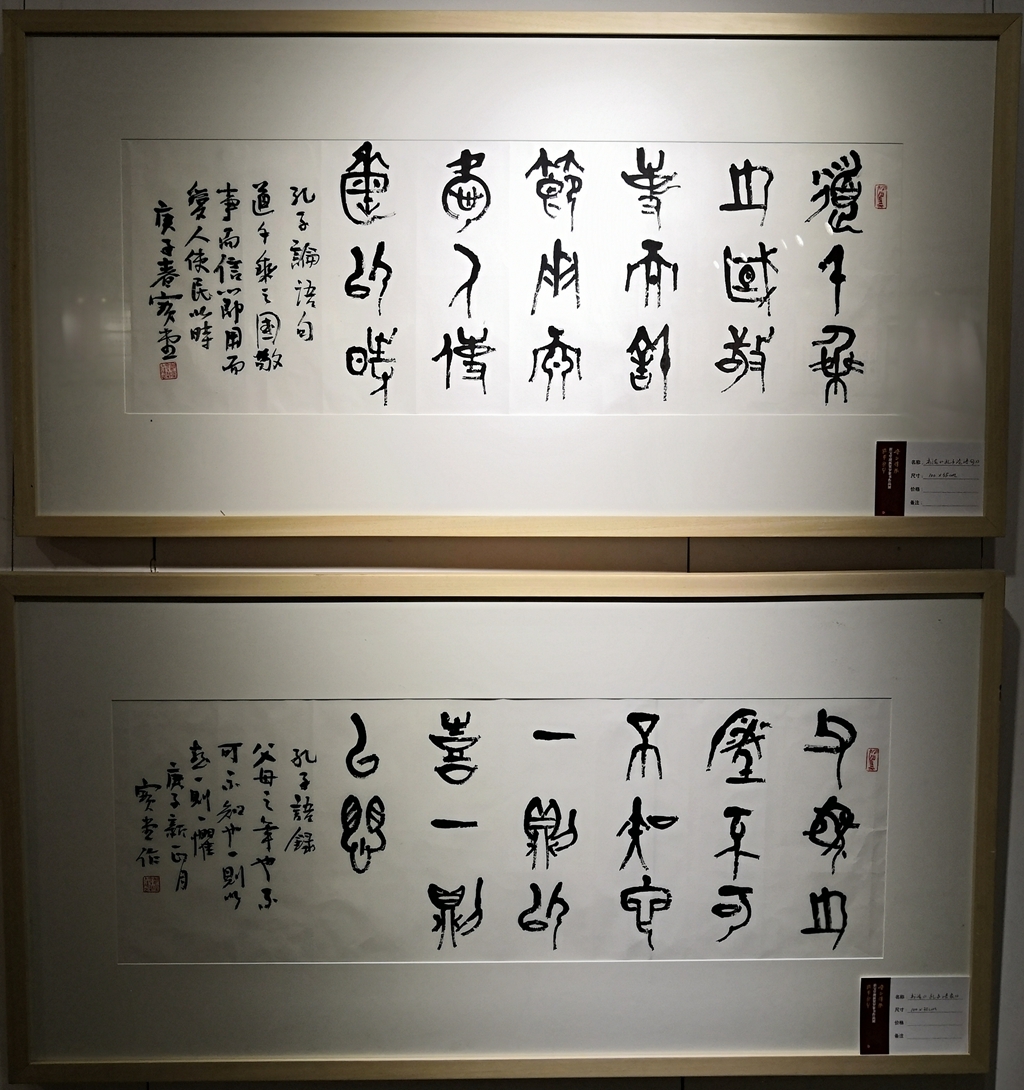 道千乘
之國敬
事而信
節用而
愛人使
民以時
孔子論語句
道千乘之國敬
事而信節用而
愛人使民以時
庚子春寶堂
名称
尺寸
价格
备注
父母之
年不可
不知也
一則以
喜一則
以懼
孔子語錄
父母之年也不
可不知也一則以
喜一則以懼
庚子新正月
寶堂作
名称
尺寸
价格
备注